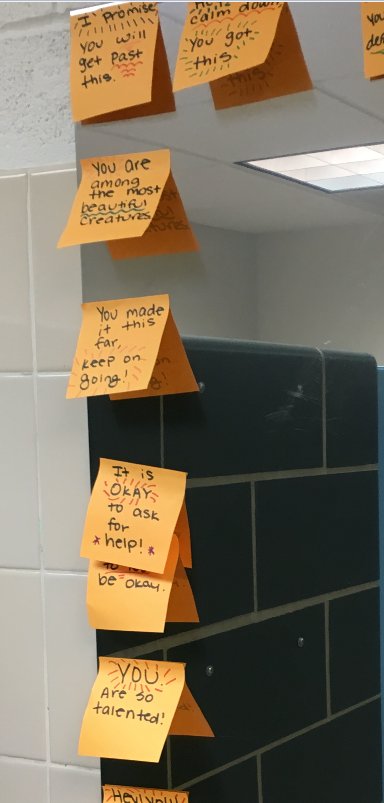 I Promise
You will
get past
this.
calm down
You got
this.
You are
among
the most
beautiful
creatures
You made
it this
far,
keep on
going!
It is
OKAY
to ask
for
*help!*
be okay.
YOU
Are so
talented!
Hey! You's